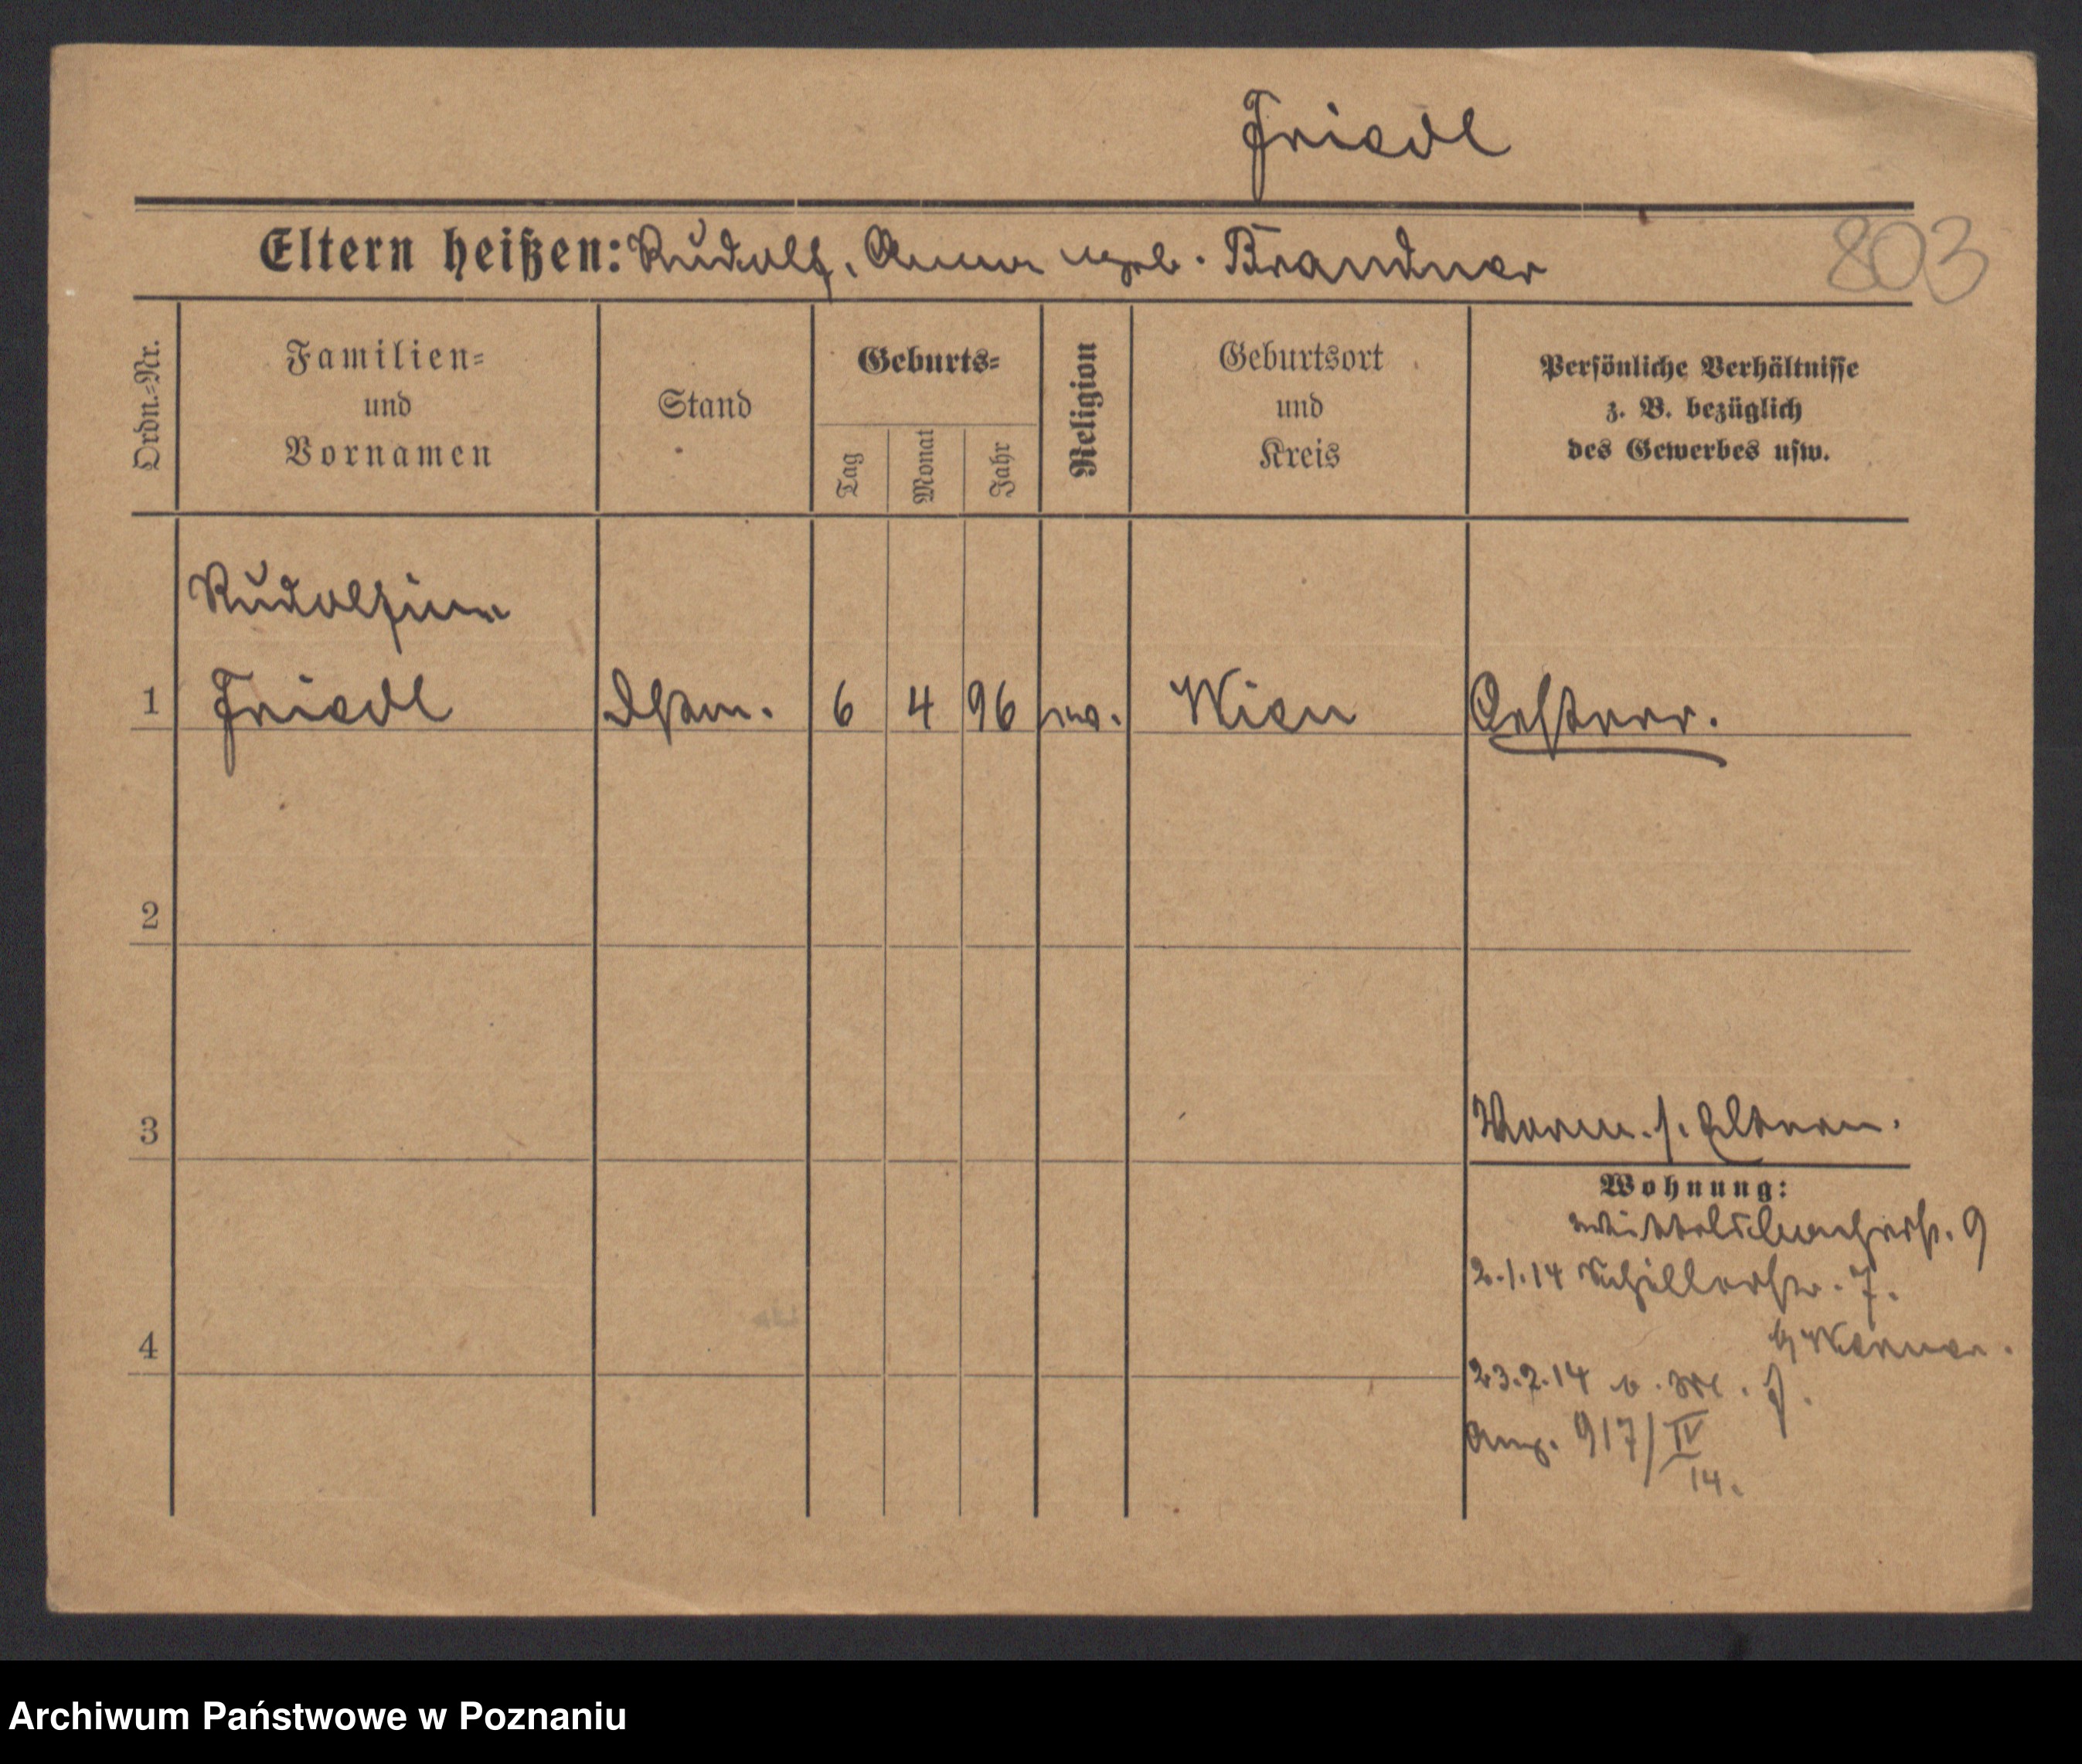 Friedl
Eltern heißen: Rudolf, Anna geb. Brandner
803
Ordn.-Nr.
Familien-
und
Vornamen
Stand
Geburts-
Tag
Monat
Jahr
Religion
Geburtsort
und
Kreis
Persönliche Verhältnisse
z. B. bezüglich
des Gewerbes usw.
Rudolfine
1 Friedl 6 4 96 Wien Oesterr.
2
3
Vorm. s. Eltern.
Wohnung:
9
2.1.14 Schillerstr. 7.
4
b/ Werner.
23.2.14
Ang. 917/IV
14.
Archiwum Państwowe w Poznaniu